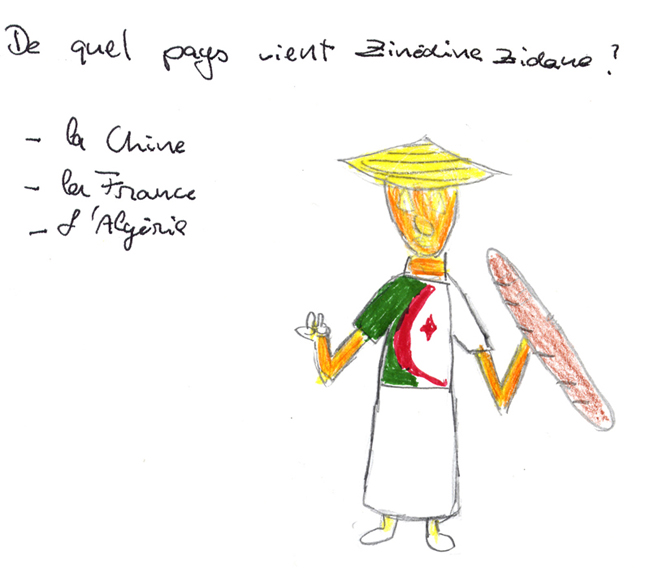 De quel pays vient Zinédine Zidane ?
- la Chine
- la France
- l'Algérie